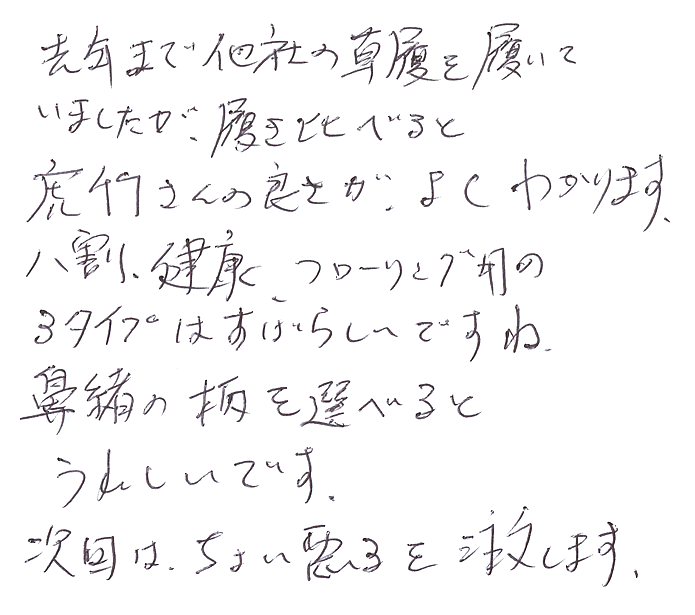 去年まで他社の草履を履いて
いましたが、履き比べると
虎竹さんの良さが、よくわかります。
八割、健康、フローリング用の
3タイプはすばらしいですね。
鼻緒の柄を選べると
うれしいです。
次回は、ちょい悪るを注文します。